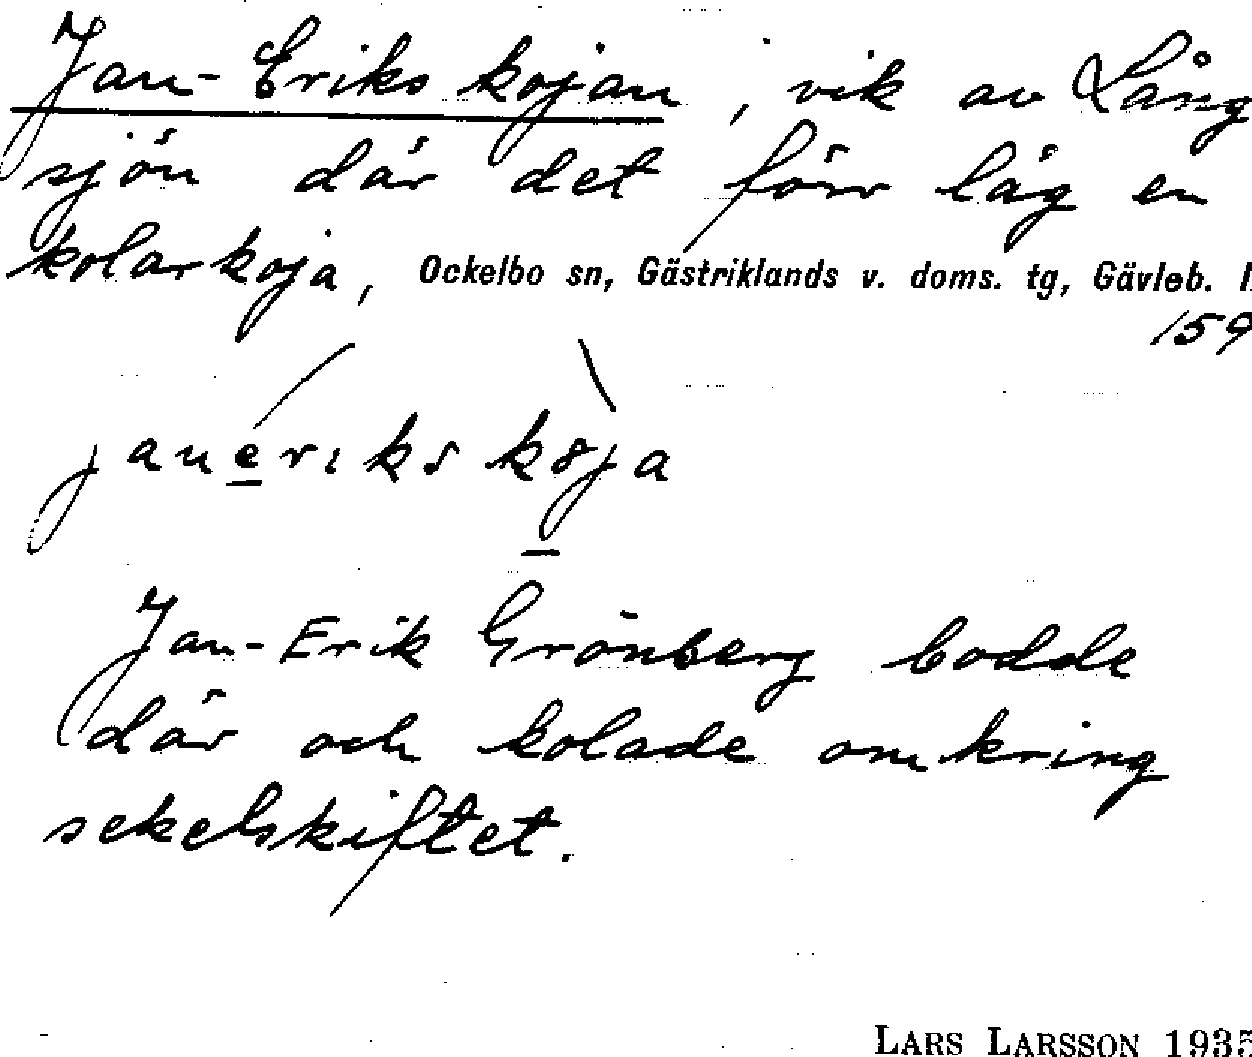 Jan-Eriks kojan, vik av Lång
sjön där det förr låg en
kolarkoja, Ockelbo sn, Gästriklands v. doms. tg, Gävleb. l.
159
janeriks köja
Jan-Erik Grönberg bodde
där och kolade omkring
sekelskiftet.
LARS LARSSON 1935